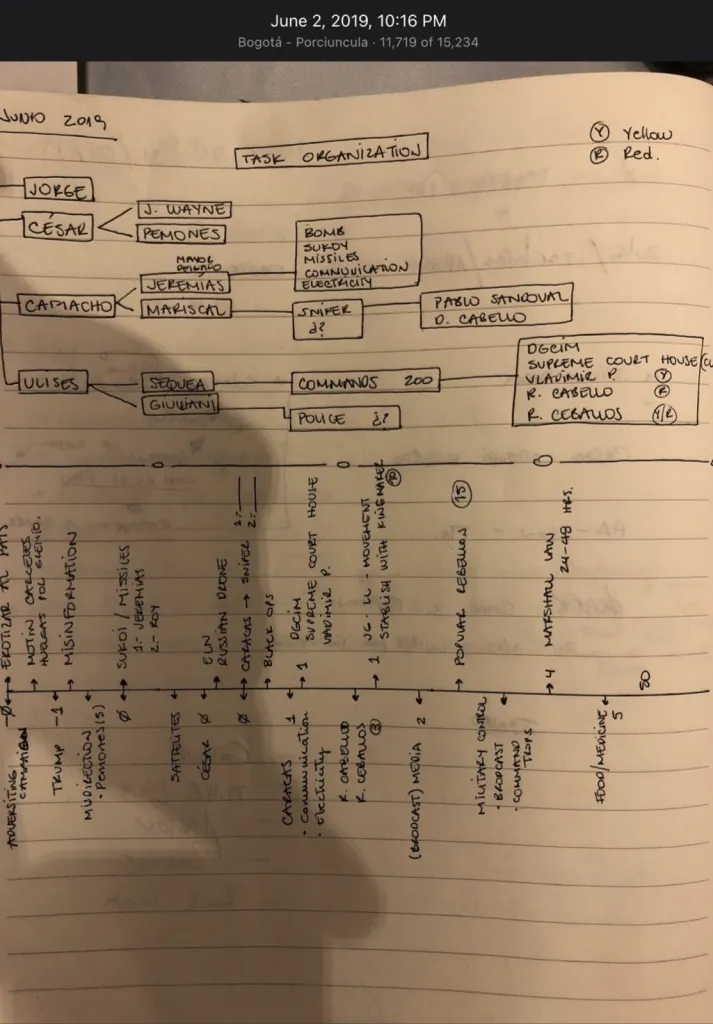 June 2, 2019, 10:16 PM
Bogotá - Porciuncula · 11,719 of 15,234
JUNIO 2019
TASK ORGANIZATION
Ⓨ Yellow
Ⓡ Red.
JORGE
CÉSAR
J. WAYNE
PEMONES
CAMACHO
MAYOR
JEREMIAS
MARISCAL
BOMB
SUKOY
MISSILES
COMMUNICATION
ELECTRICITY
SNIPER
¿?
PABLO SANDOVAL
D. CABELLO
ULISES
SEQUEA
GIULIANI
COMMANDS 200
POLICE ¿?
DGCIM
SUPREME COURT HOUSE
VLADIMIR P. Ⓨ
R. CABELLO Ⓡ
R. CEBALLOS Y/R
EROTIZAR AL PAÍS
MOTIN CARCELES
MISINFORMATION
SUKOI / MISSILES
1.- JEREMIAS
2.- ROY
ELN
RUSSIAN DRONE
CARACAS → SNIPER
1.-
2.-
BLACK OPS
1 DGCIM
SUPREME COURT HOUSE
VLADIMIR P.
1 JG - LL - MOVEMENT
STABLISH WITH KINGMAKER
POPULAR REBELLION 15
4 MARSHALL LAW
24-48 HRS.
80
-Ø
ADVERSITING
CAMPAIGN
TRUMP -1
MIDIRECTION
· PEMONES (S)
Ø
SATTELITES
CÉSAR Ø
Ø
CARACAS 1
· Communication
· Electricity
R. CABELLO
R. CEBALLOS
(BRODCAST) MEDIA 2
MILITARY CONTROL
· BRODCAST
· COMMAND
TROPS
FOOD/MEDICINE 5